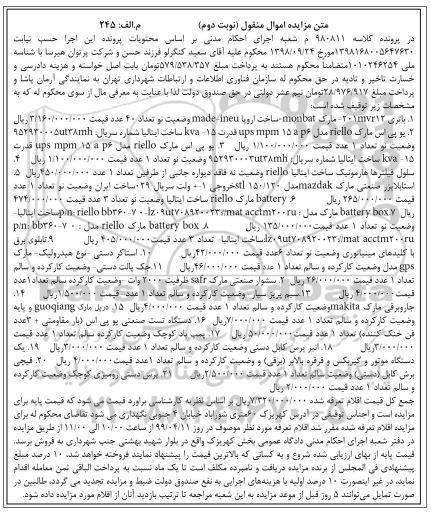 متن مزایده اموال منقول (نوبت دوم) م.الف: ۲۴۵
در پرونده کلاسه ۹۸۰۸۱۱ م شعبه اجرای احکام مدنی بر اساس محتویات پرونده این اجرا حسب نیابت
محکوم علیه آقای سعید کنگرلو فرزند حسن و شرکت پرتوان هیرسا با شناسه
ملی ۱۰۱۰۲۴۶۲۵۴ متضامنا محکوم هستند به پرداخت مبلغ ۵۷۹/۵۳۸/۳۵۷ تومان بابت اصل خواسته و هزینه دادرسی و
خسارت تاخیر و تادیه در حق محکوم له سازمان فناوری اطلاعات و ارتباطات شهرداری تهران به نمایندگی آرمان پاشا و
پرداخت مبلغ ۲۸/۹۷۶/۹۱۷ تومان نیم عشر دولتی در حق صندوق دولت لذا با عنایت به معرفی مال از سوی محکوم له که به
مشخصات زیر توقیف شده است:
۱. باتری ۲۰۱mv۲۱۲- مارک monbat- ساخت اروپا made-ineu وضعیت نو تعداد ۴۰ عدد قیمت ۳/۱۶۰/۰۰۰/۰۰۰ ریال
۲. یو پی اس مارک riello مدل ups mpm ۱۵ a p۶ قدرت ۱۵- kva ساخت ایتالیا شماره سریال:
وضعیت نو تعداد ۱ عدد قیمت ۱/۱۰۰/۰۰۰/۰۰۰ ریال ۳. یو پی اس مارک riello مدل ups mpm ۱۵ a p۶ قدرت
۱۵- kva ساخت ایتالیا شماره سریال: وضعیت نو تعداد ۱ عدد قیمت ۱/۱۰۰/۰۰۰/۰۰۰ ریال ۴.
سلول فیلترها هارمونیک ساخت ایتالیا riello وضعیت نو فاقد دیواره جانبی از طرفین تعداد ۱ عدد قیمت ۴۵۰/۰۰۰/۰۰۰ ریال ۵.
استابلایزر صنعتی مارک mazdak مدل ۱۵۰/۱۲۰ stl خروجی ۱+- ولت سریال ۰۲۹ ساخت ایران وضعیت نو تعداد ۱ عدد
قیمت ۲۶۵/۰۰۰/۰۰۰ ریال ۶. battery مارک riello ساخت ایتالیا وضعیت نو تعداد ۳ عدد قیمت ۴۷۴/۰۰۰/۰۰۰
ریال ۷. battery box مارک riello مدل: ساخت ایتالیا-
وضعیت نو تعداد ۱ عدد قیمت ۱۳۵/۰۰۰/۰۰۰ ریال ۸. battery box مارک riello مدل:
ساخت ایتالیا- تعداد ۳ عدد قیمت ۴۰۵/۰۰۰/۰۰۰ ریال ۹. تابلوی برق
با کلیدهای مینیاتوری وضعیت نو تعداد ۶ عدد قیمت ۴۲/۰۰۰/۰۰۰ ریال ۱۰. استاکر دستی- نوع هیدرولیک- مارک
gps مدل وضعیت کارکرده و سالم تعداد ۱ عدد قیمت ۴۶/۰۰۰/۰۰۰ ریال ۱۱. جک پالت دستی- وضعیت کارکرده و سالم
تعداد ۱ عدد قیمت ۲۶/۰۰۰/۰۰۰ ریال ۱۲. سشوار صنعتی مارک safr ظرفیت ۲۰۰۰ وات - وضعیت کارکرده سالم تعداد ۱ عدد
قیمت ۴/۰۰۰/۰۰۰ ریال ۱۳. سیم پرپز سیار- وضعیت کارکرده و سالم تعداد ۱ عدد- قیمت ۱/۵۰۰/۰۰۰ ریال ۱۴.
جاروبرقی مارک makita وضعیت کارکرده و سالم تعداد ۱ عدد قیمت ۴/۰۰۰/۰۰۰ ریال ۱۵. دریل مارک guoqiang و پایه
وضعیت کارکرده و سالم تعداد ۱ عدد قیمت ۷/۰۰۰/۰۰۰ ریال ۱۶. دستگاه تست صنعتی یو پی اس (بار مقاومتی + ۳ عدد
فن خنک کننده) تعداد ۱ عدد قیمت ۵۰/۰۰۰/۰۰۰ ریال ۱۷. پمپ باد کوچک وضعیت کارکرده سالم تعداد ۱ عدد قیمت
۳/۰۰۰/۰۰۰ ریال ۱۸. انبر پرس کابل دستی وضعیت کارکرده و سالم تعداد ۱ عدد قیمت ۳/۰۰۰/۰۰۰ ریال ۱۹. یک
دستگاه موتور و گیربکس و قرقره بالابر (برقی) و وضعیت کارکرده و سالم تعداد ۱ عدد قیمت ۴/۰۰۰/۰۰۰ ریال ۲۰. قیچی
برش کابل (دستی) وضعیت سالم تعداد ۱ عدد قیمت ۲/۵۰۰/۰۰۰ ریال ۲۱. پرس دستی رومیزی کوچک وضعیت کارکرده
و سالم تعداد ۱ عدد قیمت ۲/۰۰۰/۰۰۰ ریال
جمع کل قیمت اقلام تعرفه شده ۷/۳۲۰/۰۰۰/۰۰۰ ریال بر اساس نظریه کارشناسی برآورد قیمت می شود که قیمت پایه برای
مزایده است و اجناس توقیفی در آدرس کهریزک ۶۰ متری شورآباد خیابان ۴ جنوبی نگهداری می شود تقاضای محکوم له برای
مزایده اقلام تعرفه شده مقرر شد اقلام تعرفه مورد نظر موصوف در روز ۹۹/۰۴/۱۱ از ساعت ۱۰/۰۰ الی ۱۱/۰۰ از طریق مزایده
در دفتر شعبه اجرای احکام مدنی دادگاه عمومی بخش کهریزک واقع در بلوار شهید بهشتی جنب شهرداری به فروش برسد.
قیمت پایه از بهای ارزیابی شده شروع و به کسانی که بالاترین قیمت را پیشنهاد نمایند فروخته خواهد شد. ۱۰ درصد مبلغ
پیشنهادی فی المجلس از برنده مزایده دریافت و نامبرده مکلف است تا یک ماه نسبت به پرداخت الباقی ثمن معامله اقدام
نماید، در غیر اینصورت ۱۰ درصد اولیه با هزینه‌های اجرایی به نفع صندوق دولت ضبط و مزایده تجدید می گردد، طالبین در
صورت تمایل می‌توانند ۵ روز قبل از موعد مزایده به این شعبه مراجعه تا ترتیب بازدید آنان از اقلام مورد مزایده داده شود.